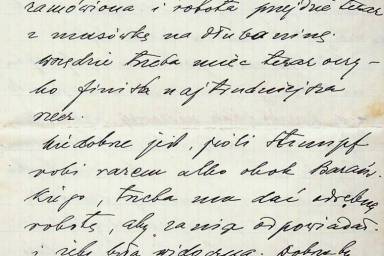 zamówiona i robota przejdzie teraz
z masówki na dłubaninę.
Wszędzie trzeba mieć teraz oczy-
bo finisz najtrudniejsza
rzecz.
Niedobrze jest, jeśli Strumpf
robi razem albo obok Barań-
kiego, trzeba mu dać odrębną
robotę, aby za nią odpowiadał
i żeby była widoczna. Dobrze by